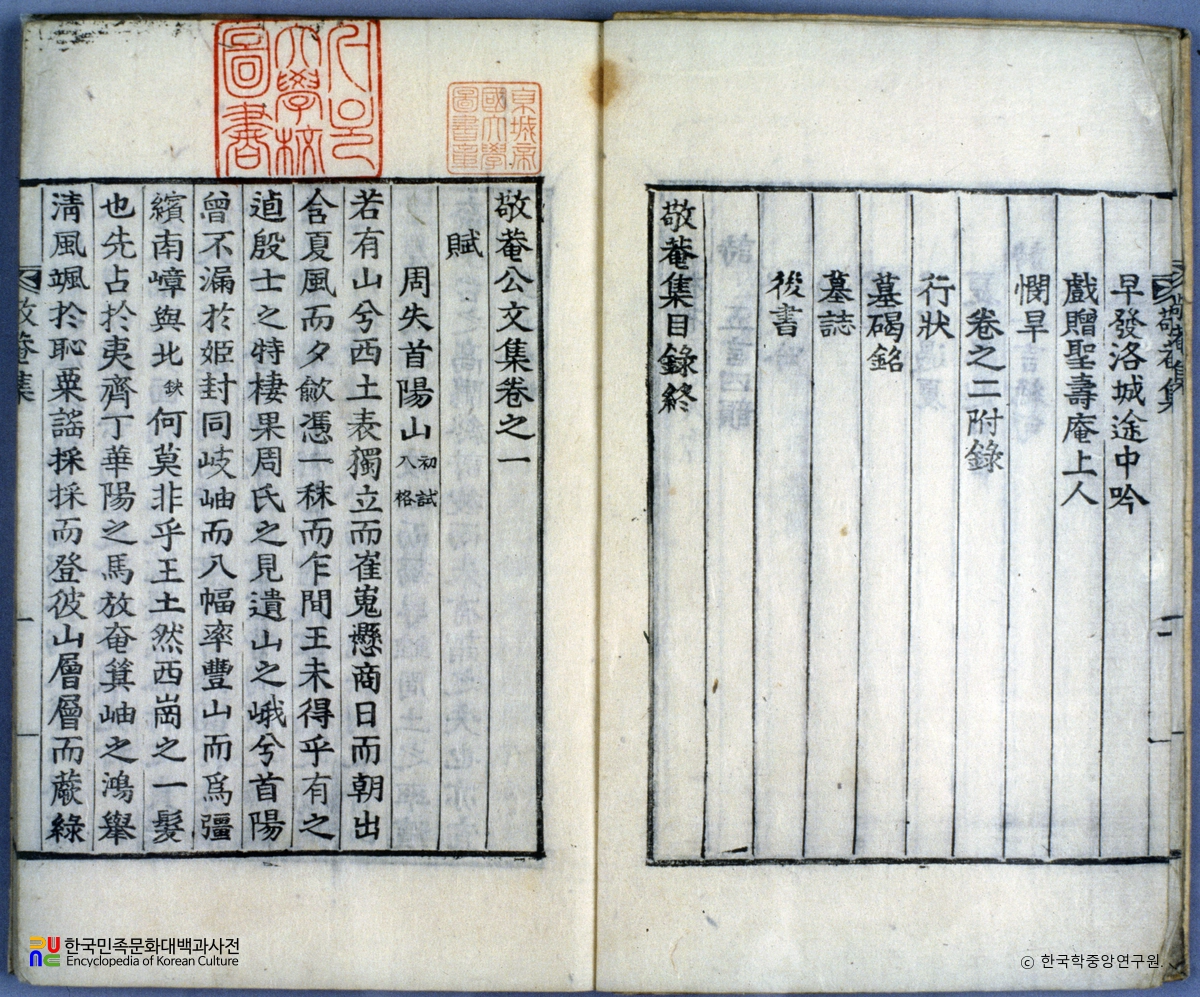 早發洛城途中吟
戲贈聖壽庵上人
憫旱
卷之二附錄
行狀
墓碣銘
墓誌
後書
敬菴集目錄終
敬菴公文集卷之一
賦
周失首陽山初試入格
若有山兮西土表獨立而崔嵬懸商日而朝出
含夏風而夕歛憑一秣而乍間王未得乎有之
逌殷士之特棲果周氏之見遺山之峨兮首陽
曾不漏於姬封同岐岫而入幅率豐山而爲疆
繽南嶂與北鈌何莫非乎王土然西崗之一髮
也先占於夷齊丁華陽之馬放奄箕岫之鴻擧
淸風颯於恥粟謠採採而登彼山層層而蕨綠
敬菴集
一
敬菴集
서울大學校圖書
京城帝國大學圖書章
한국민족문화대백과사전
Encyclopedia of Korean Culture
ⓒ 한국학중앙연구원.